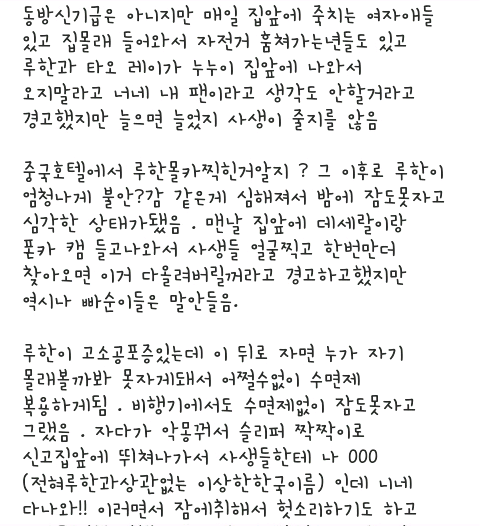 동방신기급은 아니지만 매일 집앞에 죽치는 여자애들
있고 집몰래 들어와서 자전거 훔쳐가는년들도 있고
루한과 타오 레이가 누누이 집앞에 나와서
오지말라고 너네 내 팬이라고 생각도 안할거라고
경고했지만 늘으면 늘었지 사생이 줄지를 않음
중국호텔에서 루한몰카찍힌거알지 ? 그 이후로 루한이
엄청나게 불안?감 같은게 심해져서 밤에 잠도못자고
심각한 상태가됐음 . 맨날 집앞에 데세랄이랑
폰카 캠 들고나와서 사생들 얼굴찍고 한번만더
찾아오면 이거 다올려버릴꺼라고 경고하고했지만
역시나 빠순이들은 말안들음.
루한이 고소공포증있는데 이 뒤로 자면 누가 자기
몰래볼까봐 못자게돼서 어쩔수없이 수면제
복용하게됨 . 비행기에서도 수면제없이 잠도못자고
그랬음 . 자다가 악몽꿔서 슬리퍼 짝짝이로
신고집앞에 뛰쳐나가서 사생들한테 나 000
(전혀루한과상관없는 이상한한국이름) 인데 니네
다나와!! 이러면서 잠에취해서 헛소리하기도 하고